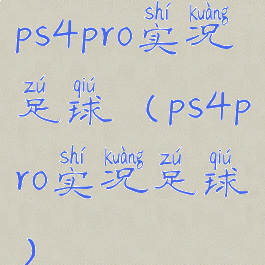 shí kuàng
ps4pro实况
zú qiú
足球（ps4p
shí kuàng zú qiú
ro实况足球
）